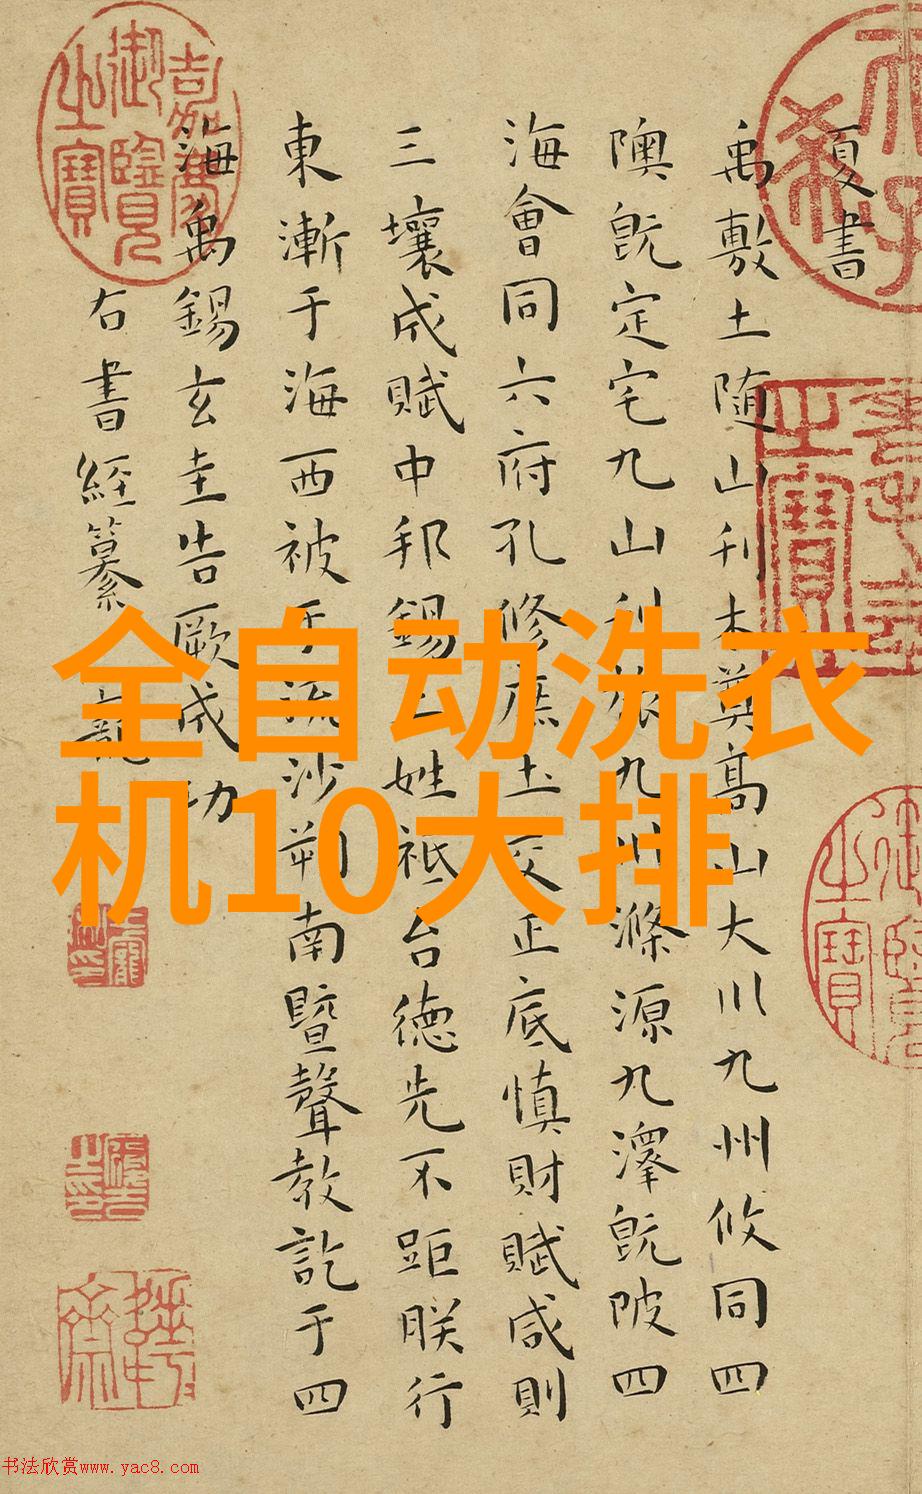 夏書
禹敷土随山刊木奠高山大川九州攸同四
隩既定宅九山刊旅九川滌源九澤既陂四
海會同六府孔修庶土交正底慎財賦咸則
三壤成賦中邦錫土姓祗台德先不距朕行
東漸于海西被于流沙朔南暨聲教訖于四
海禹錫玄圭告厥成功
右書經纂
嘉慶御覽之寶
全自动洗衣
机10大排
书法欣赏www.yac8.com